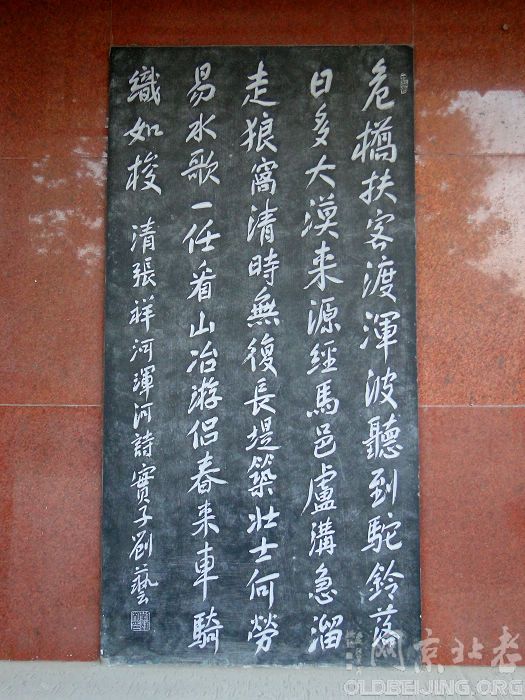 危橋扶客渡渾波聽到駝鈴落
日多大漠来源經馬邑盧溝急溜
走狼窩清時無復長堤築壯士何勞
易水歌一任看山冶游侣春来車騎
織如梭
清張祥河渾河詩實子劉藝
老北京网
OLDBEIJING.ORG